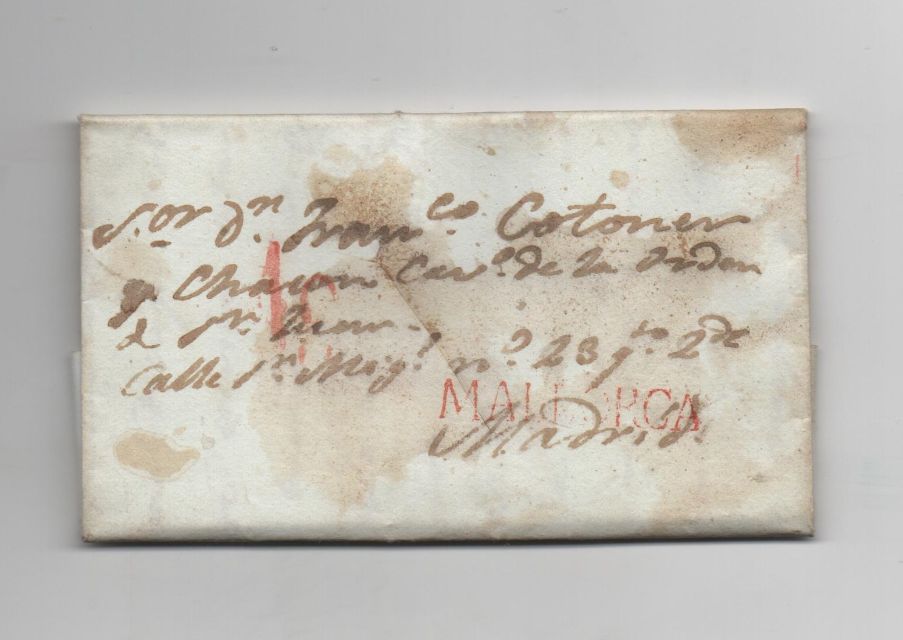 S.or Dn. Franco. Cotoner
y Chacon Cavo. de la Orden
de Sn. Juan.
Calle Sn. Migl. no. 23 qto. 2do
MALLORCA
Madrid.